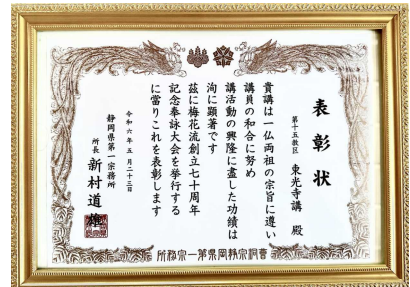 表彰状
第十五教区　東光寺講　殿
貴講は一仏両祖の宗旨に遵い
講員の和合に努め
講活動の興隆に盡した功績は
洵に顕著です
茲に梅花流創立七十周年
記念奉詠大会を挙行する
に當りこれを表彰します
令和六年五月二十三日
静岡県第一宗務所
所長　新村道雄
所務宗一第県岡静宗洞曹